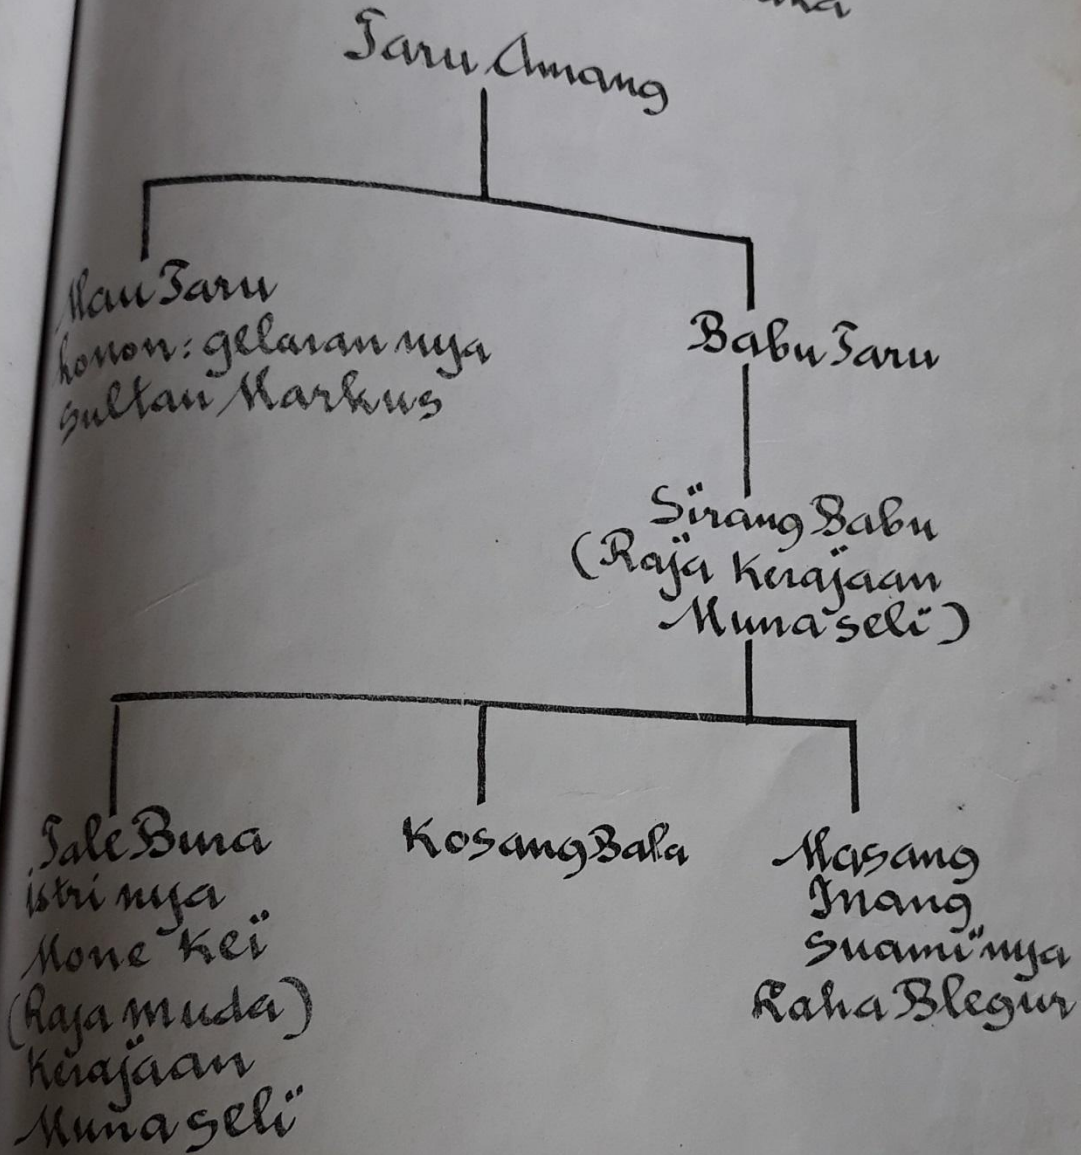 Taru Amang
Mau Taru
konon: gelarannya
Sultan Markus
Babu Taru
Sirang Babu
(Raja Kerajaan
Munaseli)
Tale Bura
istrinya
Mone Kei
(Raja muda)
Kerajaan
Munaseli
Kosang Bala
Masang
Inang
Suaminya
Raha Blegur